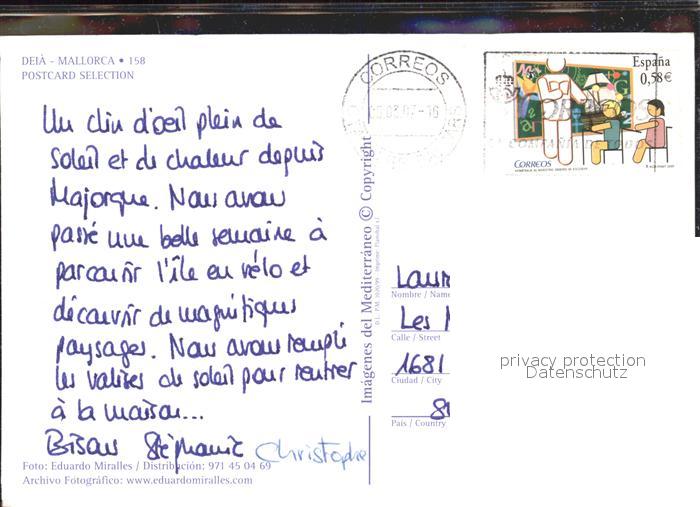 DEIÀ - MALLORCA • 158
POSTCARD SELECTION
Un clin d'oeil plein de
soleil et de chaleur depuis
Majorque. Nous avons
passé une belle semaine à
parcourir l'île en vélo et
découvrir de magnifiques
paysages. Nous avons rempli
les valises de soleil pour rentrer
à la maison...
Bisous Stéphanie Christophe
Foto: Eduardo Miralles / Distribución: 971 45 04 69
Archivo Fotográfico: www.eduardomiralles.com
Imágenes del Mediterráneo © Copyright
CORREOS
España
0,58€
CORREOS
Nombre / Name
Les
Calle / Street
1681
Ciudad / City
País / Country
privacy protection
Datenschutz